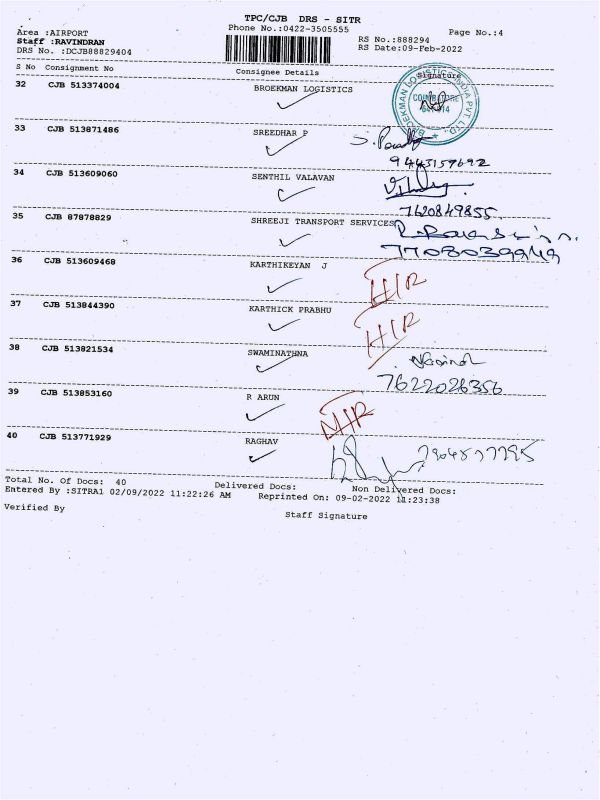 TPC/CJB DRS - SITR
Phone No.:0422-3505555
Page No.:4
Area :AIRPORT
Staff :RAVINDRAN
DRS No. :DCJB88829404
RS No.:888294
RS Date:09-Feb-2022
S No Consignment No Consignee Details Signature
32 CJB 513374004 BROEKMAN LOGISTICS
BROEKMAN LOGISTICS INDIA PVT. LTD.
COIMBATORE
33 CJB 513871486 SREEDHAR P
9443157692
34 CJB 513609060 SENTHIL VALAVAN
7620849855
35 CJB 87878829 SHREEJI TRANSPORT SERVICES
7708039949
36 CJB 513609468 KARTHIKEYAN J
37 CJB 513844390 KARTHICK PRABHU
38 CJB 513821534 SWAMINATHNA
7622026356
39 CJB 513853160 R ARUN
40 CJB 513771929 RAGHAV
Total No. of Docs: 40 Delivered Docs: Non Delivered Docs:
Entered By :SITRA1 02/09/2022 11:22:26 AM Reprinted On: 09-02-2022 11:23:38
Verified By
Staff Signature